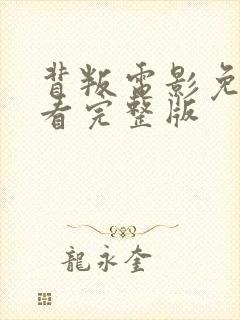 背叛电影免
看完整版
龍永奎